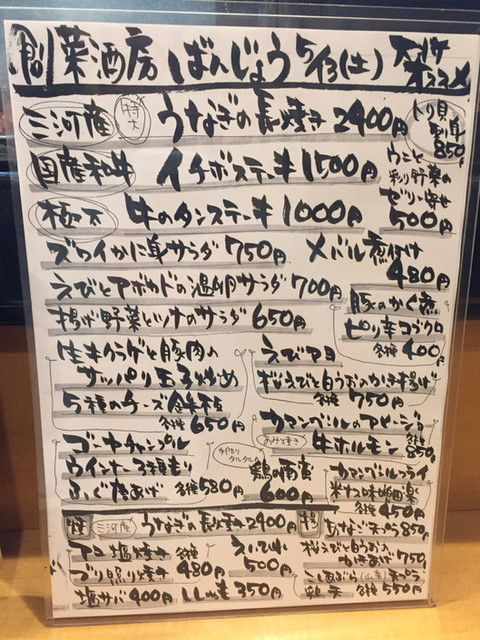 創菜酒房 ばんじょう 5/13(土) オススメ
三河産 特大 うなぎの長焼き 2400円
とり貝
刺身
850円
国産和牛 イチボステーキ 1500円
ウニと
彩り野菜の
ゼリー寄せ
500円
極太 牛のタンステーキ 1000円
ズワイかに身サラダ 750円
メバル煮付け
480円
えびとアボカドの温卵サラダ 700円
揚げ野菜とツナのサラダ 650円
豚のかく煮
ピリ辛コブクロ
各種 400円
生キクラゲと豚肉の
サッパリ玉子炒め
5種のチーズ
各種 650円
えびマヨ
桜えびと白うおのかき揚げ
各種 750円
カマンベールのアヒージョ
あみ焼き 牛ホルモン
各種 850円
ゴーヤチャンプル
ウインナー3種もり
ふぐ唐あげ 各種 580円
手作りタルタル
鶏の南蛮
600円
カマンベールフライ
米ナス味噌田楽
各種 450円
三河産 うなぎの長焼き 2400円
塩焼き
ブリ照り焼き 各種 480円
塩サバ 400円
えいひれ
500円
ししゃも 350円
あなご天ぷら 850円
桜えびと白うおの
かきあげ 750円
こしあぶら(山菜)天ぷら
鶏天 各種 550円